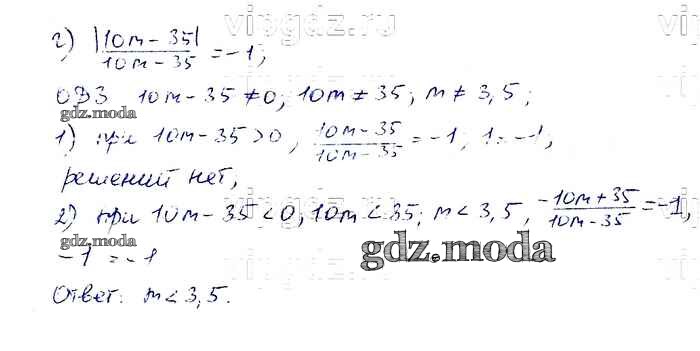 vipgdz.ru vipgdz.ru
г) |10m - 35| / 10m - 35 = -1;
ОДЗ 10m - 35 ≠ 0; 10m ≠ 35; m ≠ 3,5;
gdz.moda
1) при 10m - 35 > 0, 10m - 35 / 10m - 35 = -1; 1 = -1;
решений нет,
vipgdz.ru vipgdz.ru
2) при 10m - 35 < 0, 10m < 35; m < 3,5, -10m + 35 / 10m - 35 = -1,
gdz.moda gdz.moda
-1 = -1
Ответ: m < 3,5.